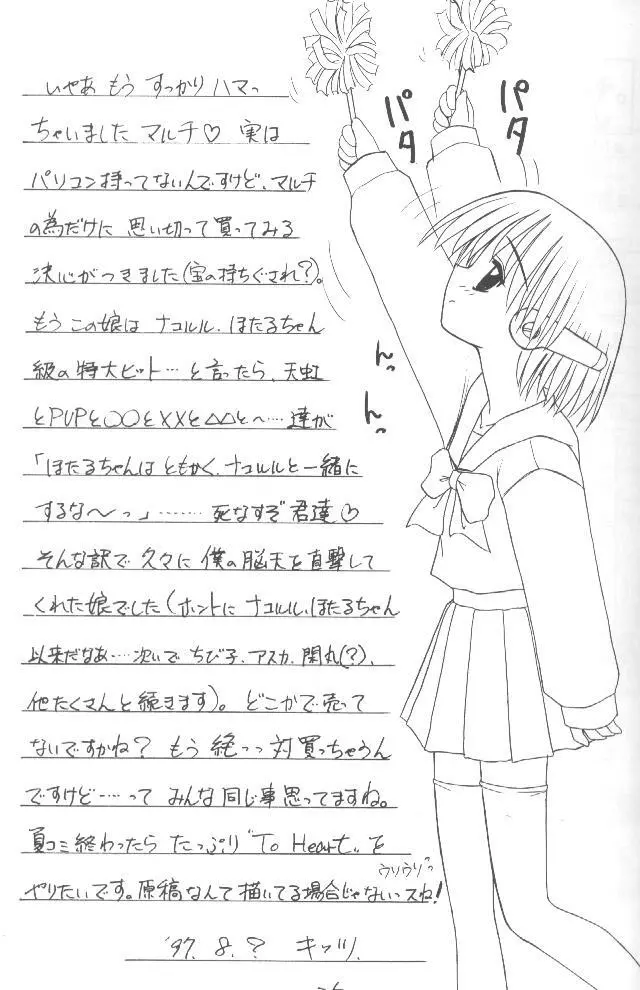 いやあ もう すっかり ハマっ
ちゃいました マルチ♡ 実は
パソコン持ってないんですけど、マルチ
の為だけに 思い切って買ってみる
決心がつきました(宝の持ちぐされ?)。
もう この娘は ナコルル、ほたるちゃん
級の特大ヒット…と言ったら、天虹
とPVPと○○と××と△△と〜…達が
「ほたるちゃんは ともかく、ナコルルと一緒に
するな〜っ」……… 死なすぞ 君達♡
そんな訳で 久々に 僕の脳天を直撃して
くれた娘でした(ホントに ナコルル、ほたるちゃん
以来だなあ…次いで ちび子、アスカ、関丸(?)、
他たくさんと続きます)。どこかで売って
ないですかね? もう 絶っっ対買っちゃうん
ですけど……って みんな同じ事思ってますね。
夏コミ終わったら たっぷり "To Heart" を
やりたいです。原稿なんて描いてる場合じゃないっスね!
ウリウリっ
'97. 8. ? キッツ
パタ
パタ
んっ
んっ